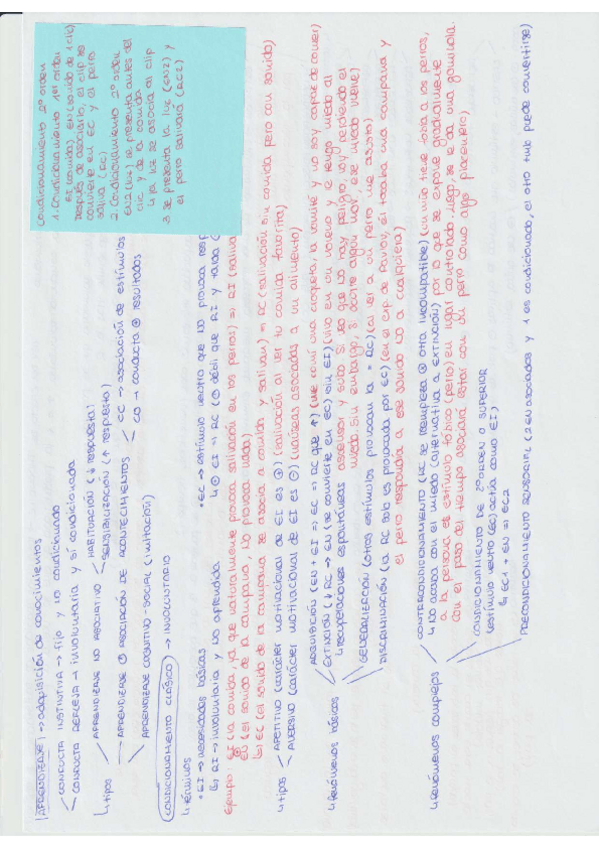 APRENDIZAJE → adquisición de conocimientos
CONDUCTA INSTINTIVA → fijo y no condicionado
CONDUCTA REFLEJA → involuntaria y sí condicionada
↳ tipos
APRENDIZAJE NO ASOCIATIVO
HABITUACIÓN (↓ respuesta)
SENSIBILIZACIÓN (↑ respuesta)
APRENDIZAJE ASOCIACIÓN DE ACONTECIMIENTOS
CC → asociación de estímulos
CO → conducta ⊕ resultados
APRENDIZAJE COGNITIVO-SOCIAL (imitación)
CONDICIONAMIENTO CLÁSICO → INVOLUNTARIO
↳ términos
• EI → necesidades básicas
↳ RI → involuntaria y no aprendida
• EC → estímulo neutro que NO provoca resp
↳ ⊖ EI → RC (⊖ débil que RI y tarda
Ejemplo: EI (la comida, ya que naturalmente provoca salivación en los perros) → RI (saliva
EN (el sonido de la campana, NO provoca nada)
↳ EC (el sonido de la campana, se asocia a comida y salivan) → RC (salivación sin comida pero con sonido)
↳ tipos
APETITIVO (carácter motivacional de EI es ⊕) (salivación al ver tu comida favorita)
AVERSIVO (carácter motivacional de EI es ⊖) (náuseas asociadas a un alimento)
↳ fenómenos básicos
ADQUISICIÓN (EN + EI → EC → RC que ↑) (me comí una croqueta, la vomité y no soy capaz de comer)
EXTINCIÓN (↓ RC → EN (se convierte en EC) sin EI) (vivo en un noveno y le tengo miedo al
↳ recuperaciones espontáneas ascensor y subo. Si veo que no hay peligro, voy perdiendo el
miedo. Sin embargo, si ocurre algún movi, ese miedo viene)
GENERALIZACIÓN (otros estímulos provocan la = RC) (al ver a un perro me asusto)
DISCRIMINACIÓN (la RC solo es provocada por EC) (en el exp de Pavlov, él tocaba una campana y
el perro respondía a ese sonido no a cualquiera)
↳ fenómenos complejos
CONTRACONDICIONAMIENTO (RC se reemplaza ⊕ otra incompatible) (un niño tiene fobia a los perros,
↳ NO acaba con el miedo (alternativa a EXTINCIÓN) por lo que se expone gradualmente
a la persona al estímulo fóbico (perro) en lugar controlado. Luego, se le da una gominola.
Con el paso del tiempo asociará estar con un perro como algo placentero)
CONDICIONAMIENTO DE 2º ORDEN O SUPERIOR
(estímulo neutro (EC) actúa como EI)
↳ EC1 + EN → EC2
PRECONDICIONAMIENTO SENSORIAL (2 EN asociados y 1 es condicionado, el otro tmb puede convertirse)
Condicionamiento 2º orden
1. Condicionamiento 1er orden
EI (comida), EN (sonido de 1 clip)
Después de asociarlo, el clip se
convierte en EC y el perro
saliva (RC)
2. Condicionamiento 2º orden
EN2 (luz) se presenta antes del
clic y de la comida
↳ la luz se asocia al clip
3. Se presenta la luz (EN2) y
el perro salivará (RC2)